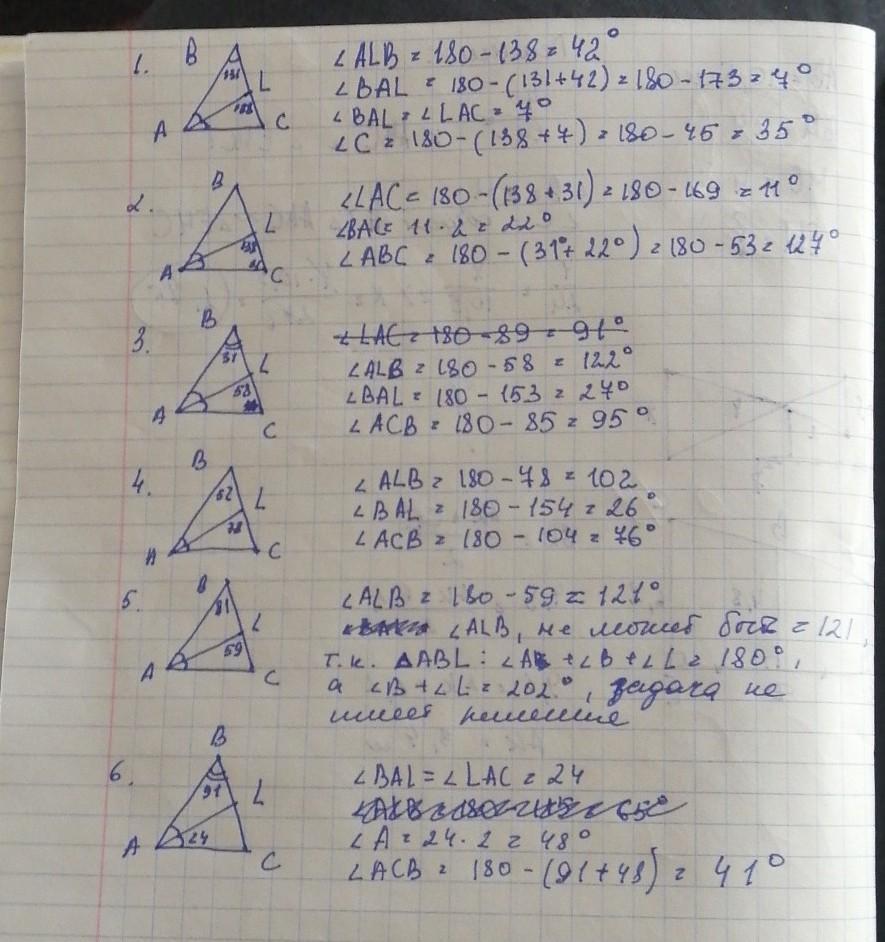 1. B 131 L 138 A C
∠ALB = 180 - 138 = 42°
∠BAL = 180 - (131+42) = 180 - 173 = 7°
∠BAL = ∠LAC = 7°
∠C = 180 - (138+7) = 180 - 45 = 35°
2. B L 138 A 31 C
∠LAC = 180 - (138+31) = 180 - 169 = 11°
∠BAC = 11 · 2 = 22°
∠ABC = 180 - (31°+22°) = 180 - 53 = 127°
3. B 31 L 58 A C
∠LAC = 180 - 89 = 91°
∠ALB = 180 - 58 = 122°
∠BAL = 180 - 153 = 27°
∠ACB = 180 - 85 = 95°
4. B 52 L 78 A C
∠ALB = 180 - 78 = 102
∠BAL = 180 - 154 = 26°
∠ACB = 180 - 104 = 76°
5. B 81 L 59 A C
∠ALB = 180 - 59 = 121°
∠ALB, не может быть = 121,
т.к. ΔABL: ∠A + ∠B + ∠L = 180°,
а ∠B + ∠L = 202°, задача не
имеет решение
6. B 91 L A 24 C
∠BAL = ∠LAC = 24
∠A = 24 · 2 = 48°
∠ACB = 180 - (91+48) = 41°